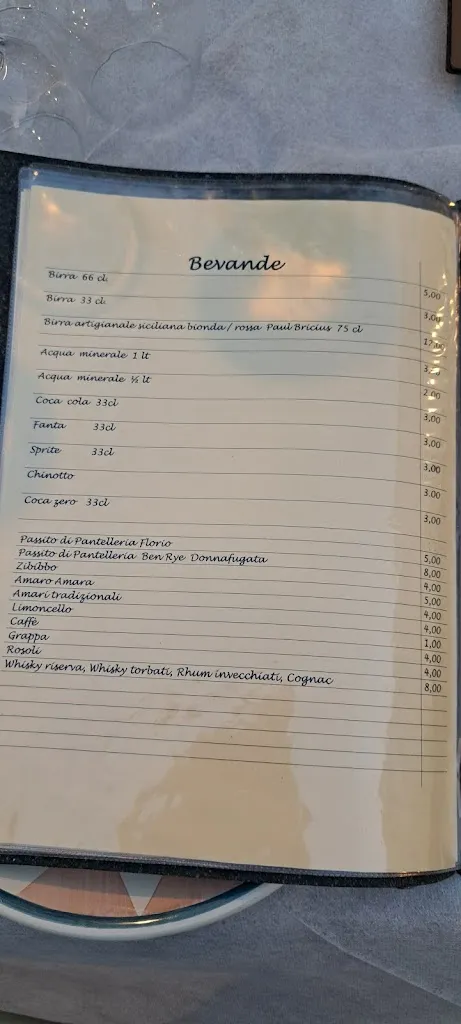 Bevande
Birra 66 cl 5,00
Birra 33 cl 3,00
Birra artigianale siciliana bionda / rossa Paul Bricius 75 cl 12,00
Acqua minerale 1 lt 3,00
Acqua minerale ½ lt 2.00
Coca cola 33cl 3,00
Fanta 33cl 3,00
Sprite 33cl 3,00
Chinotto 3.00
Coca zero 33cl 3,00
Passito di Pantelleria Florio 5,00
Passito di Pantelleria Ben Rye Donnafugata 8,00
Zibibbo 4,00
Amaro Amara 5,00
Amari tradizionali 4,00
Limoncello 4,00
Caffè 1,00
Grappa 4,00
Rosoli 4,00
Whisky riserva, Whisky torbati, Rhum invecchiati, Cognac 8,00